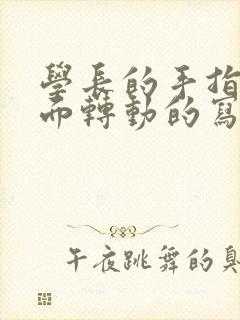 學長的手指
而轉動的寫
午夜跳舞的臭